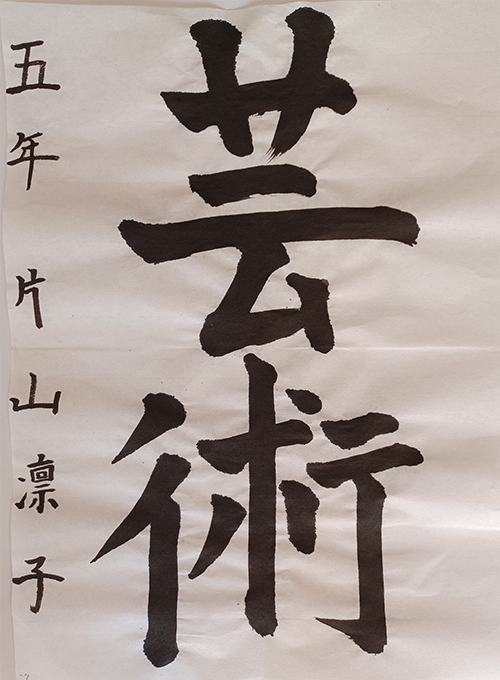 芸術
五年 片山凛子